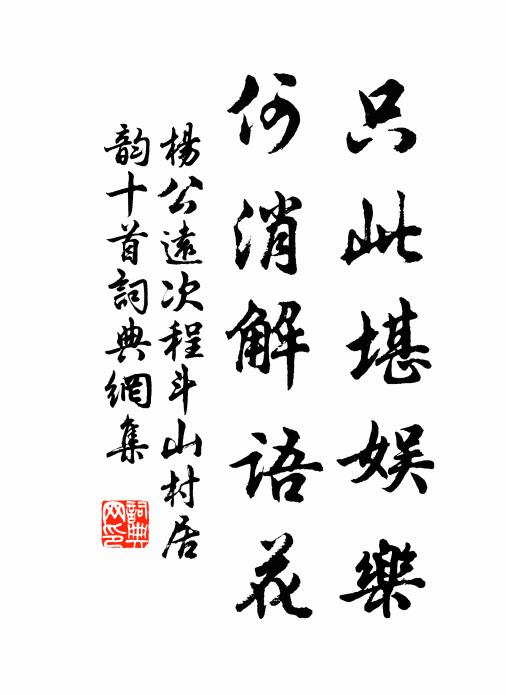 只此堪娱樂
何消解語花
楊公遠次程斗山村居
韵十首詞典網集
詞典网印